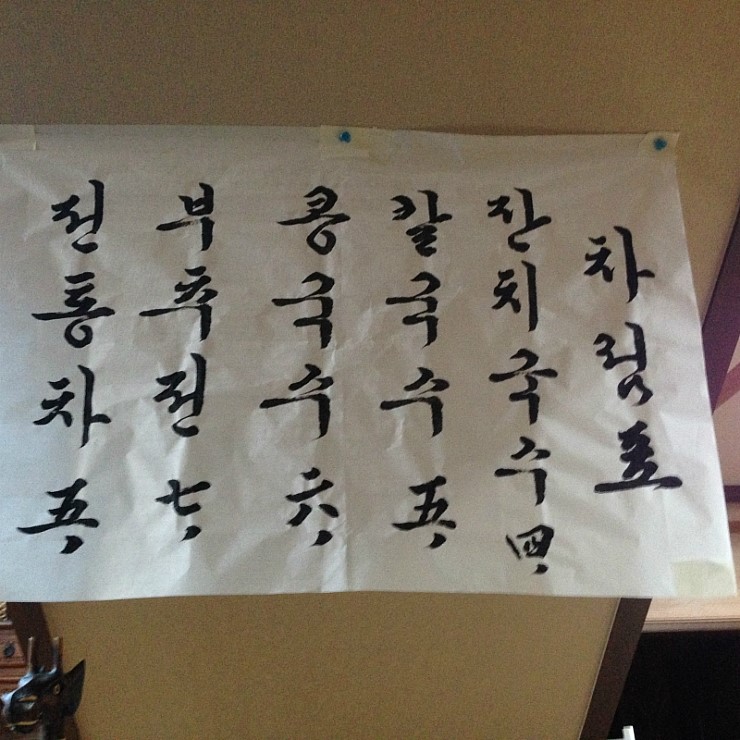 차림표
잔치국수 四,
칼국수 五,
콩국수 六,
부추전 七,
전통차 五,